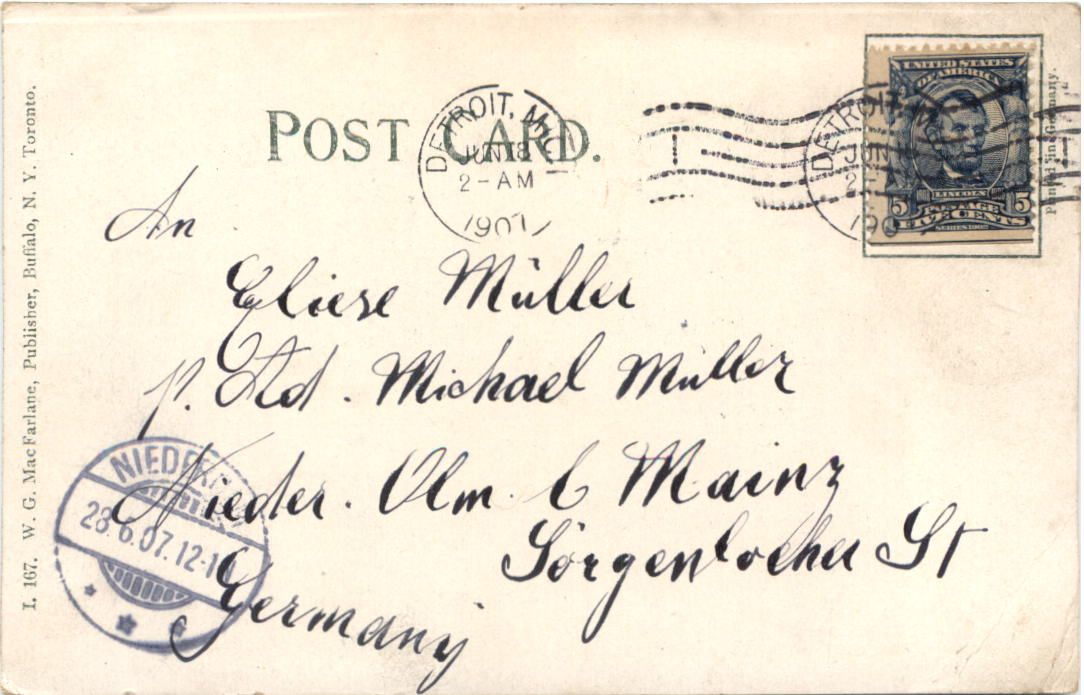 POST CARD.
DETROIT, MICH
JUN 18
2-AM
1907
DETROIT, MICH
JUN
2-
190
UNITED STATES
OF AMERICA
LINCOLN
5 POSTAGE 5
FIVE CENTS
SERIES 1902
Printed in Germany.
I. 167. W. G. MacFarlane, Publisher, Buffalo, N. Y. Toronto.
An
Eliese Müller
p. Ad. Michael Müller
Nieder. Olm. b Mainz
Sörgenlocher St
Germany
NIEDER
28.6.07.12-1